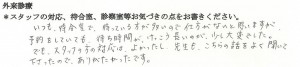 外来診療
*スタッフの対応、待合室、診察室等お気づきの点をお書きください。
いつも、待合室で、待っている方が多いので仕方がないのと思いますが
予約をしていても、待ち時間が、けっこう長いのが、少し大変でした。
でも、スタッフの方の対応は、よかったし、先生も、こちらの話をよく聞いて
下さったので、ありがたかったです。